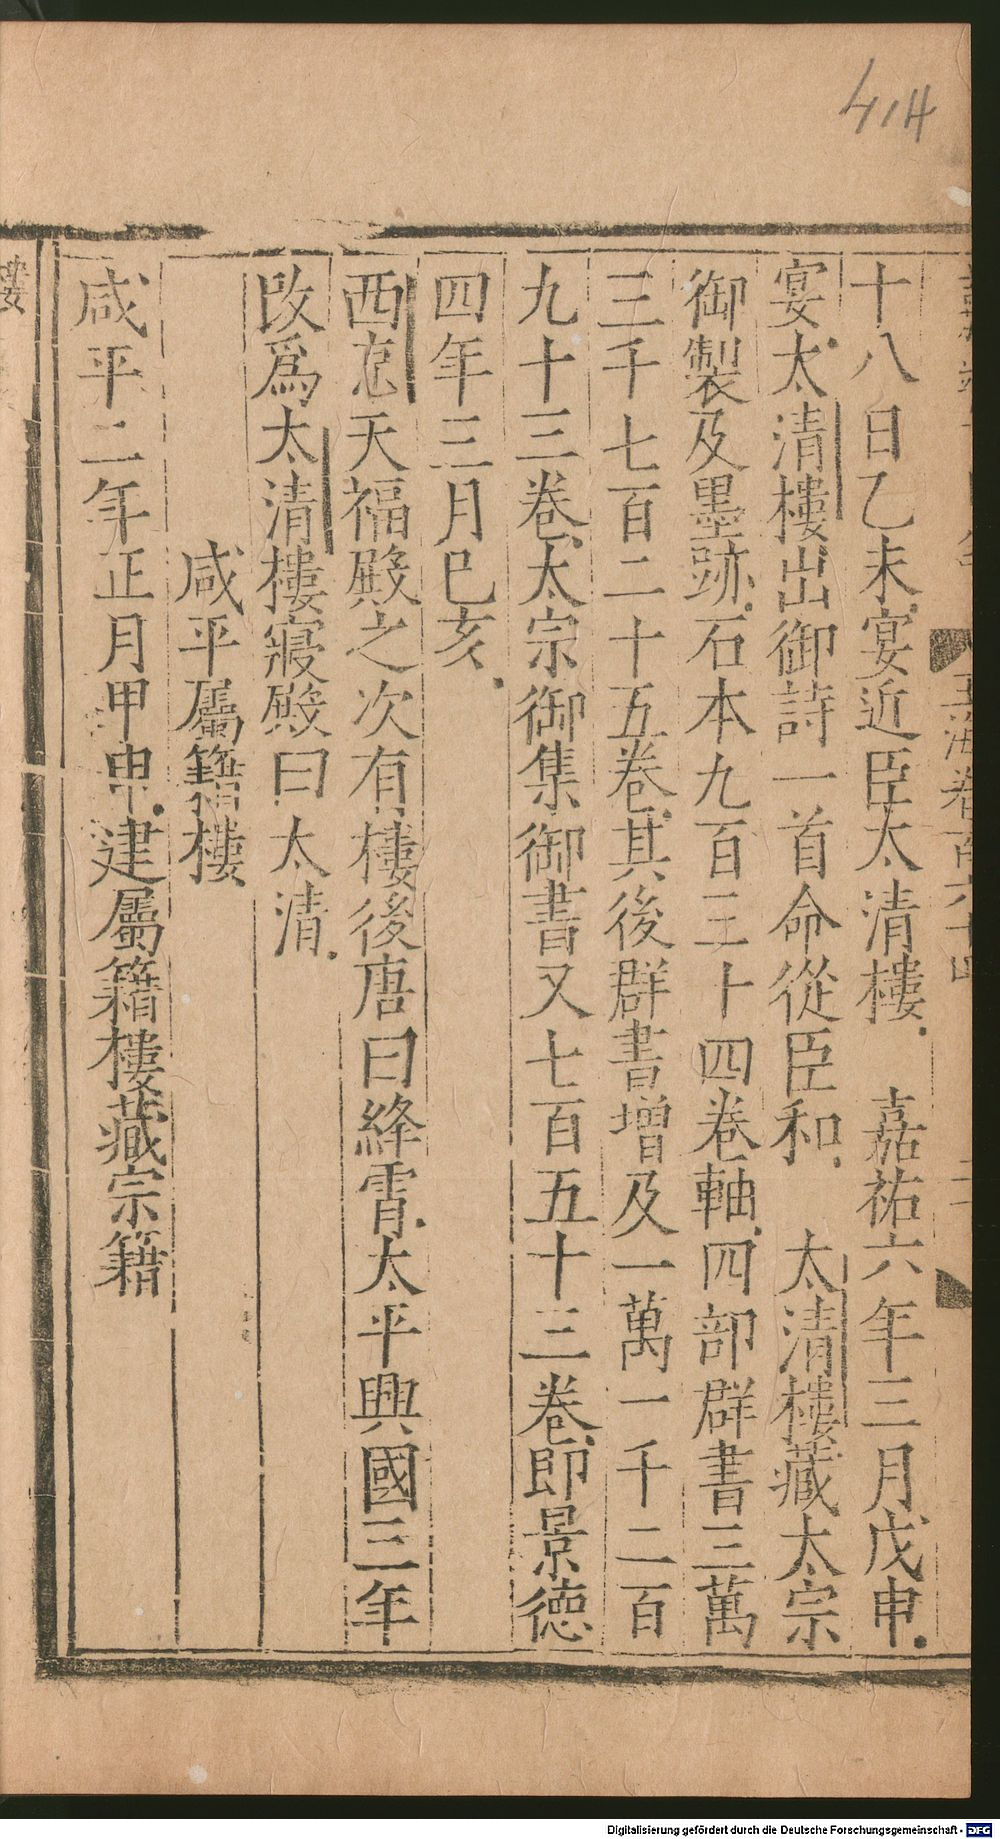 414
玉海卷百六十四
十八日乙未宴近臣太清樓　嘉祐六年三月戊申
宴太清樓出御詩一首命從臣和　太清樓藏太宗
御製及墨跡石本九百三十四卷軸四部群書三萬
三千七百二十五卷其後群書增及一萬一千二百
九十三卷太宗御集御書又七百五十三卷即景德
四年三月巳亥
西京天福殿之次有樓後唐曰絳霄太平興國三年
改爲太清樓寢殿曰太清
咸平屬籍樓
咸平二年正月甲申建屬籍樓藏宗籍
樓
Digitalisierung gefördert durch die Deutsche Forschungsgemeinschaft - DFG